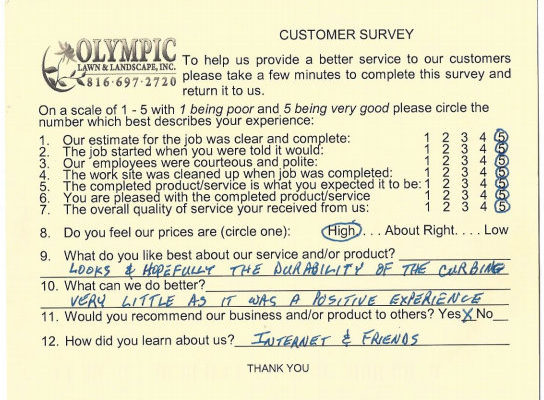 CUSTOMER SURVEY
OLYMPIC
LAWN & LANDSCAPE, INC.
816-697-2720
To help us provide a better service to our customers
please take a few minutes to complete this survey and
return it to us.
On a scale of 1 - 5 with 1 being poor and 5 being very good please circle the
number which best describes your experience:
1. Our estimate for the job was clear and complete: 1 2 3 4 5
2. The job started when you were told it would: 1 2 3 4 5
3. Our employees were courteous and polite: 1 2 3 4 5
4. The work site was cleaned up when job was completed: 1 2 3 4 5
5. The completed product/service is what you expected it to be: 1 2 3 4 5
6. You are pleased with the completed product/service 1 2 3 4 5
7. The overall quality of service your received from us: 1 2 3 4 5
8. Do you feel our prices are (circle one): High. . . . About Right. . . . Low
9. What do you like best about our service and/or product?
LOOKS & HOPEFULLY THE DURABILITY OF THE CURBING
10. What can we do better?
VERY LITTLE AS IT WAS A POSITIVE EXPERIENCE
11. Would you recommend our business and/or product to others? Yes X No__
12. How did you learn about us? INTERNET & FRIENDS
THANK YOU